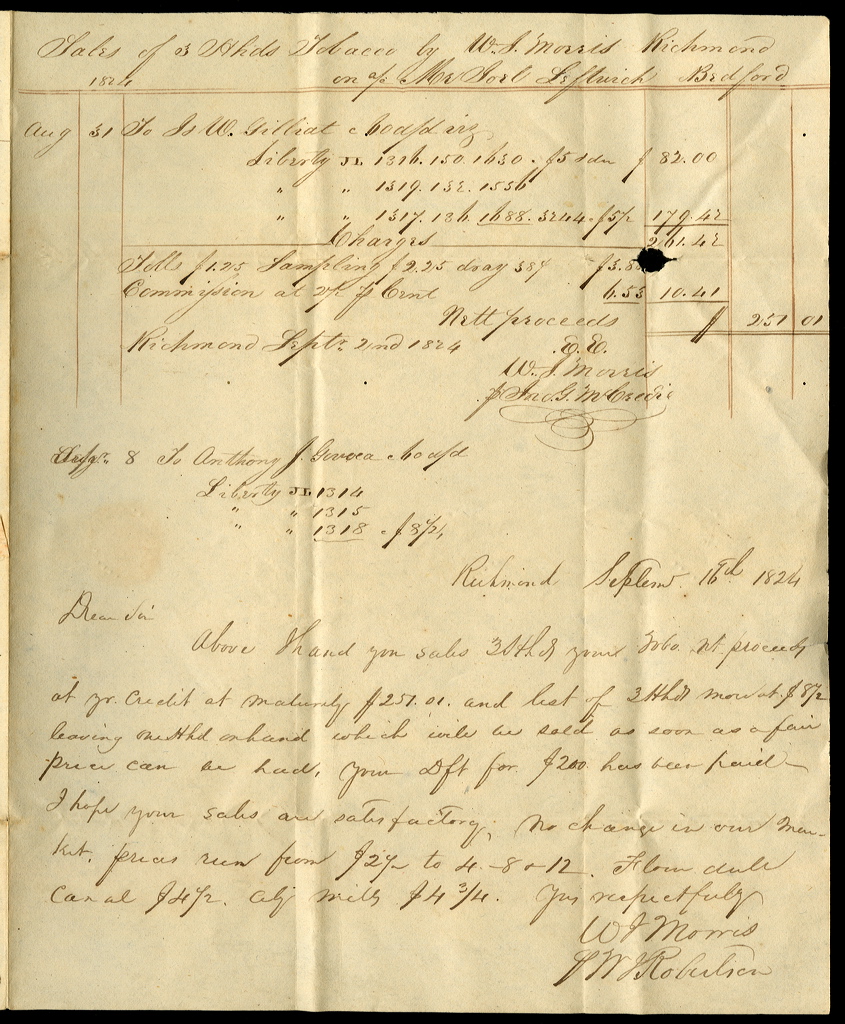 Sales of 3 Hhds Tobacco by W. S. Morris Richmond
1824 on a/c Mr Joel Leftwich Bedford
Aug 31 To Js W. Gilliat 60 d/s viz
Liberty JL 1316. 150. 1630. $5 $ 82.00
" " 1319. 132. 1556
" " 1317. 136. 1688. 3244. $5½ 179.42
Charges 261.42
Tolls $1.25 Sampling $2.25 dray 38¢ $3.88
Commission at 2½ p Cent 6.53 10.41
Nett proceeds $ 251 01
Richmond Septr. 2nd 1824 E.E.
W. S. Morris
p Jno. G. McCredie
Sepr. 8 To Anthony J. 60 d/s
Liberty JL 1314
" " 1315
" " 1318 $8½
Richmond Septem. 16th 1824
Dear Sir
Above I hand you sales 3 Hhds your Tobo. Nt proceeds
at yr. Credit at maturity $251.01. and list of 3 Hhds more at $8½
leaving one Hhd on hand which will be sold as soon as a fair
price can be had, your Dft for $200 has been paid
I hope your sales are satisfactory, No change in our Mar-
ket. prices run from $2½ to 4 - 8 & 12. Flour dull
Canal $4½. City mills $4 3/4. Yrs respectfully
W S Morris
p W J Robertson